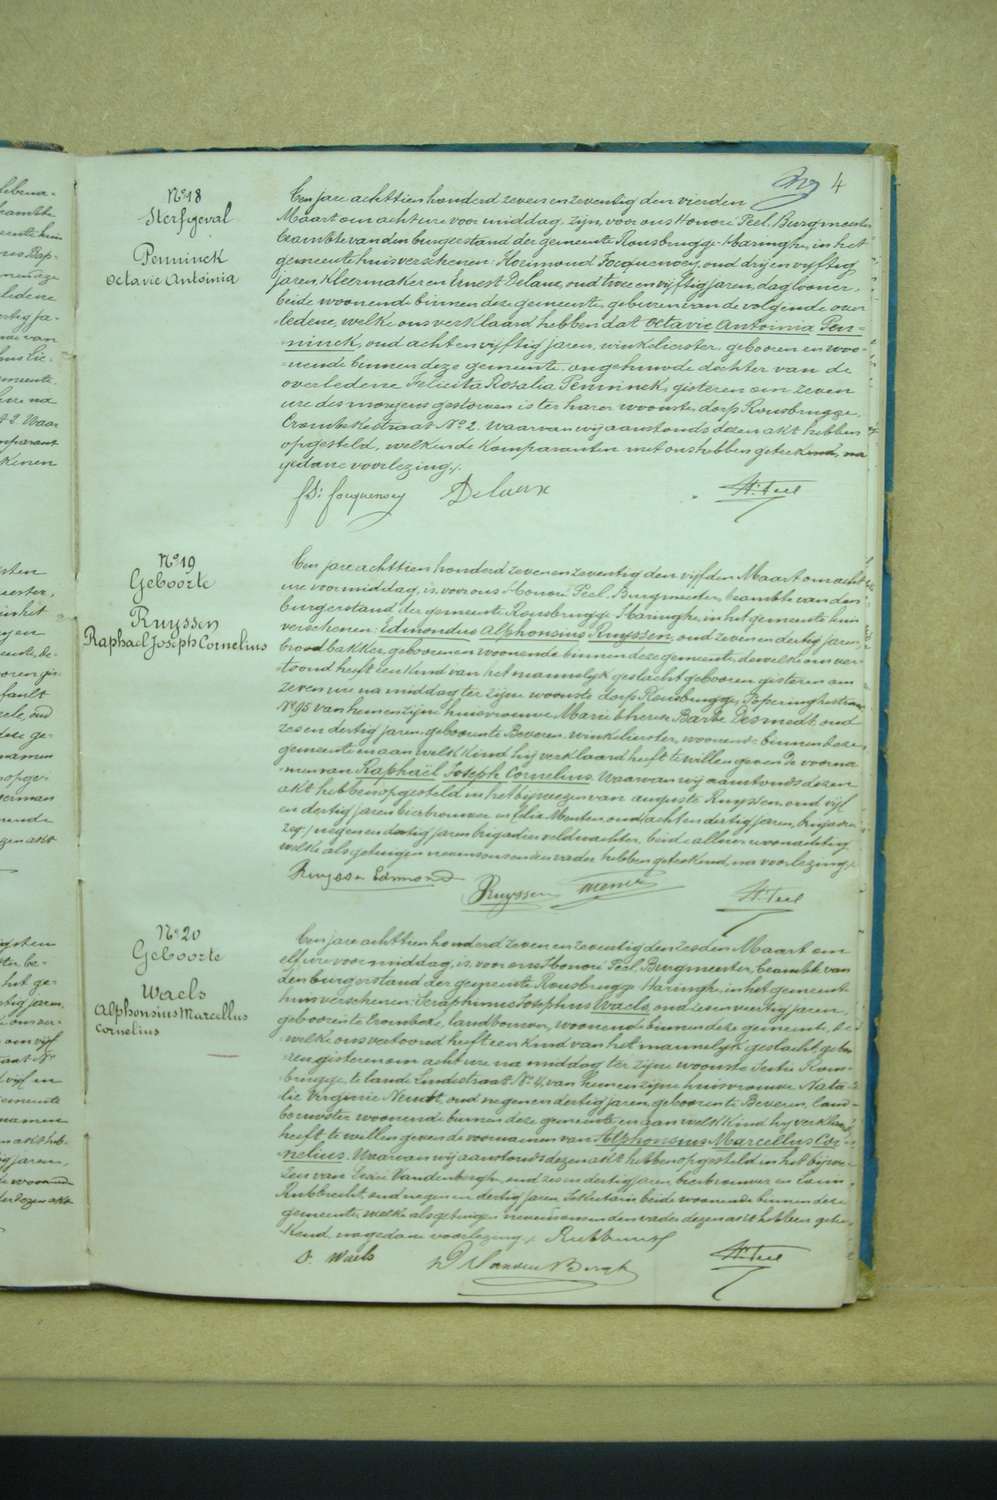 4
Nº 18
Sterfgeval
Penninck
Octavie Antoinia
Een jare achttien honderd zeven en zeventig den vierden
Maart om acht ure voormiddag, zijn, voor ons Honoré Peel, Burgmeester
beambte van den burgerstand der gemeente Rousbrugge-Haringhe, in het
gemeentehuis verschenen: Florimond Jocquensoey, oud drij en vijftig
jaren, kleermaker en Ernest Delaux, oud twee en vijftig jaren, daglooner,
beide woonende binnen deze gemeente, geburen van de volgende over-
ledene, welke ons verklaard hebben dat Octavie Antoinia Pen-
ninck, oud acht en vijftig jaren, winkelierster, gebooren en woo-
nende binnen deze gemeente, ongehuwde dochter van de
overledene Felicita Rosalia Penninck, gisteren om zeven
ure des morgens gestorven is ter harer woonste, dorp Rousbrugge,
Crombekestraat Nº 2. Waarvan wij aanstonds dezen akt hebben
opgesteld, welken de komparanten met ons hebben geteekend, na
gedane voorlezing.
Delaux
H. Peel
Nº 19
Geboorte
Ruyssen
Raphaël Joseph Cornelius
Een jare achttien honderd zeven en zeventig den vijfden Maart om acht
ure voormiddag, is, voor ons Honoré Peel, Burgmeester, beambte van den
burgerstand der gemeente Rousbrugge-Haringhe, in het gemeentehuis
verschenen: Edmondus Alphonsius Ruyssen, oud zeven en dertig jaren,
broodbakker, gebooren en woonende binnen deze gemeente, dewelke ons ver-
toond heeft een kind van het mannelijk geslacht, gebooren gisteren om
zeven ure na middag ter zijne woonste dorp Rousbrugge, Poperinghestraat
Nº 95 van hem en zijne huisvrouwe Marie Therese Barbe Desmedt, oud
zes en dertig jaren, geboorente Beveren, winkelierster, woonende binnen deze
gemeente en aan welk kind hij verklaard heeft te willen geven de voorna-
men van Raphaël Joseph Cornelius. Waarvan wij aanstonds dezen
akt hebben opgesteld in het bijwezen van Auguste Ruyssen, oud vijf
en dertig jaren bierbrouwer en Felix Menten, oud (acht en dertig jaren, brigadier
zeg:) negen en dertig jaren brigadier veldwachter, beide alhier woonachtig
welke als getuigen nevens ons en den vader hebben geteekend, na voorlezing.
Ruyssen Edmond
Ruyssen
H. Peel
Nº 20
Geboorte
Waels
Alphonsius Marcellus
Cornelius
Een jare achttien honderd zeven en zeventig den zesden Maart om
elf ure voormiddag, is, voor ons Honoré Peel, Burgmeester, beambte van
den burgerstand der gemeente Rousbrugge-Haringhe, in het gemeente
huis verschenen: Seraphinus Josephus Waels, oud zes en veertig jaren,
geboorente Crombeke, landbouwer, woonende binnen deze gemeente, de-
welke ons vertoond heeft een kind van het mannelijk geslacht, geboo-
ren gisteren om acht ure na middag ter zijne woonste Sectie Rous-
brugge, te lande Lindestraat Nº 4, van hem en zijne huisvrouwe Nata-
lie Virginie Neudt, oud negen en dertig jaren, geboorente Beveren, land-
bouwster woonende binnen deze gemeente en aan welk kind hij verklaard
heeft te willen geven de voornamen van Alphonsius Marcellus Cor-
nelius. Waarvan wij aanstonds dezen akt hebben opgesteld in het bijwe-
zen van Vandenberghe, oud zes en dertig jaren bierbrouwer en Louis
Rubbrecht, oud negen en dertig jaren Sekretaris beide woonende binnen deze
gemeente, welke als getuigen nevens ons en den vader dezen akt hebben getee-
kend, na gedane voorlezing.
S. Waels
H. Peel